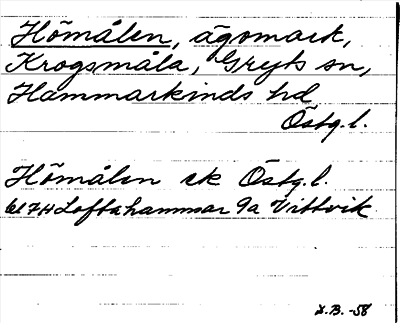 Hömålen, ägomark,
Krogsmåla, Gryts sn,
Hammarkinds hd
Östg.l.
Hömålen ek Östg.l.
bl 74 Loftahammar 9a Vittvik
L.B. -58